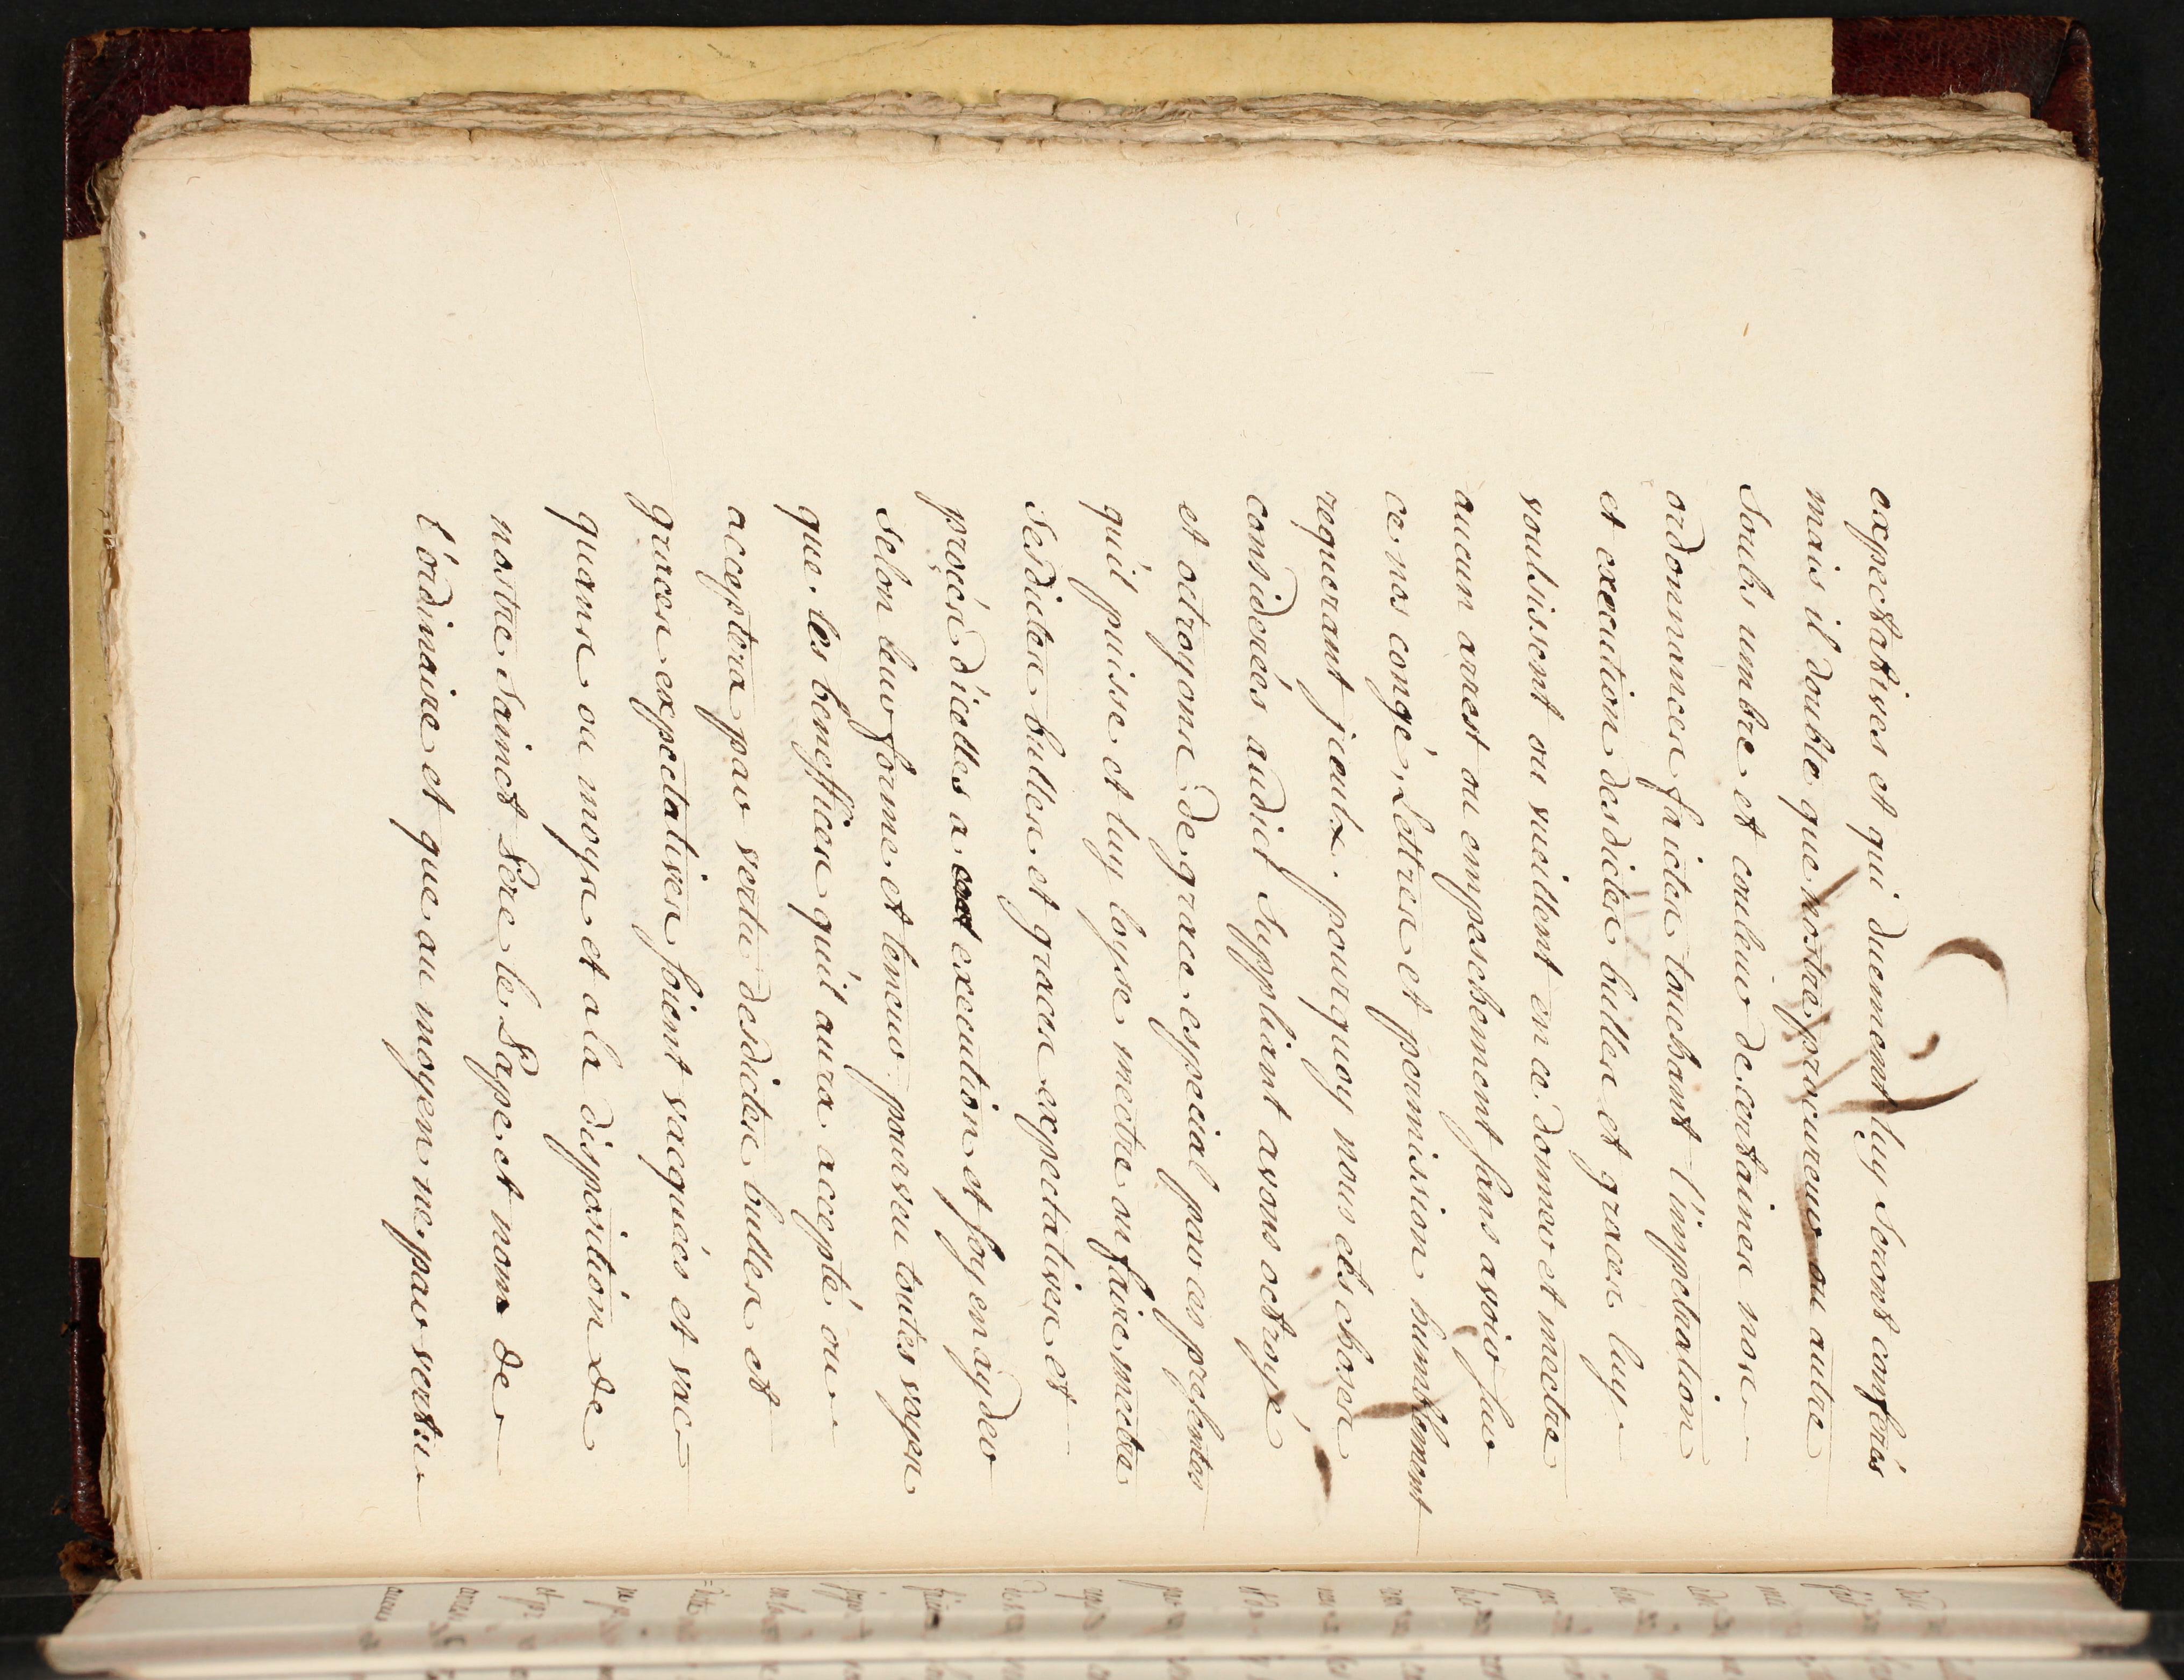 expectatives et qui duemment luy seront conferés
mais il doubte que nostre procureur ou autre
soubs umbre et couleur de certaines nos
ordonnances faictes touchant l'impetration
et execution desdictes bulles et graces luy
voulsissent ou vueillent en ce donner et mectre
aucun arrest ou empeschement sans avoir sur
ce nos congé, Lettres et permission humblement
requerant jceulx. pourquoy nous ces choses
considereés audict suppliant avons octroyé
et octroyons de grace especial par ces presentes
qu'il puisse et luy loyse mectre ou faire mectre
sesdictes bulles et graces expectatives et
procés d'icelles a execution et soy en ayder
selon leur forme et teneur pourveu toutes voyes
que les beneffices qu'il aura accepté ou
acceptera par vertu desdictes bulles et
graces expectatives soient vacqueés et vac-
quans ou moys et a la disposition de
nostre sainct Pere le Pape et non de
l'ordinaire et que au moyen ne par vertu